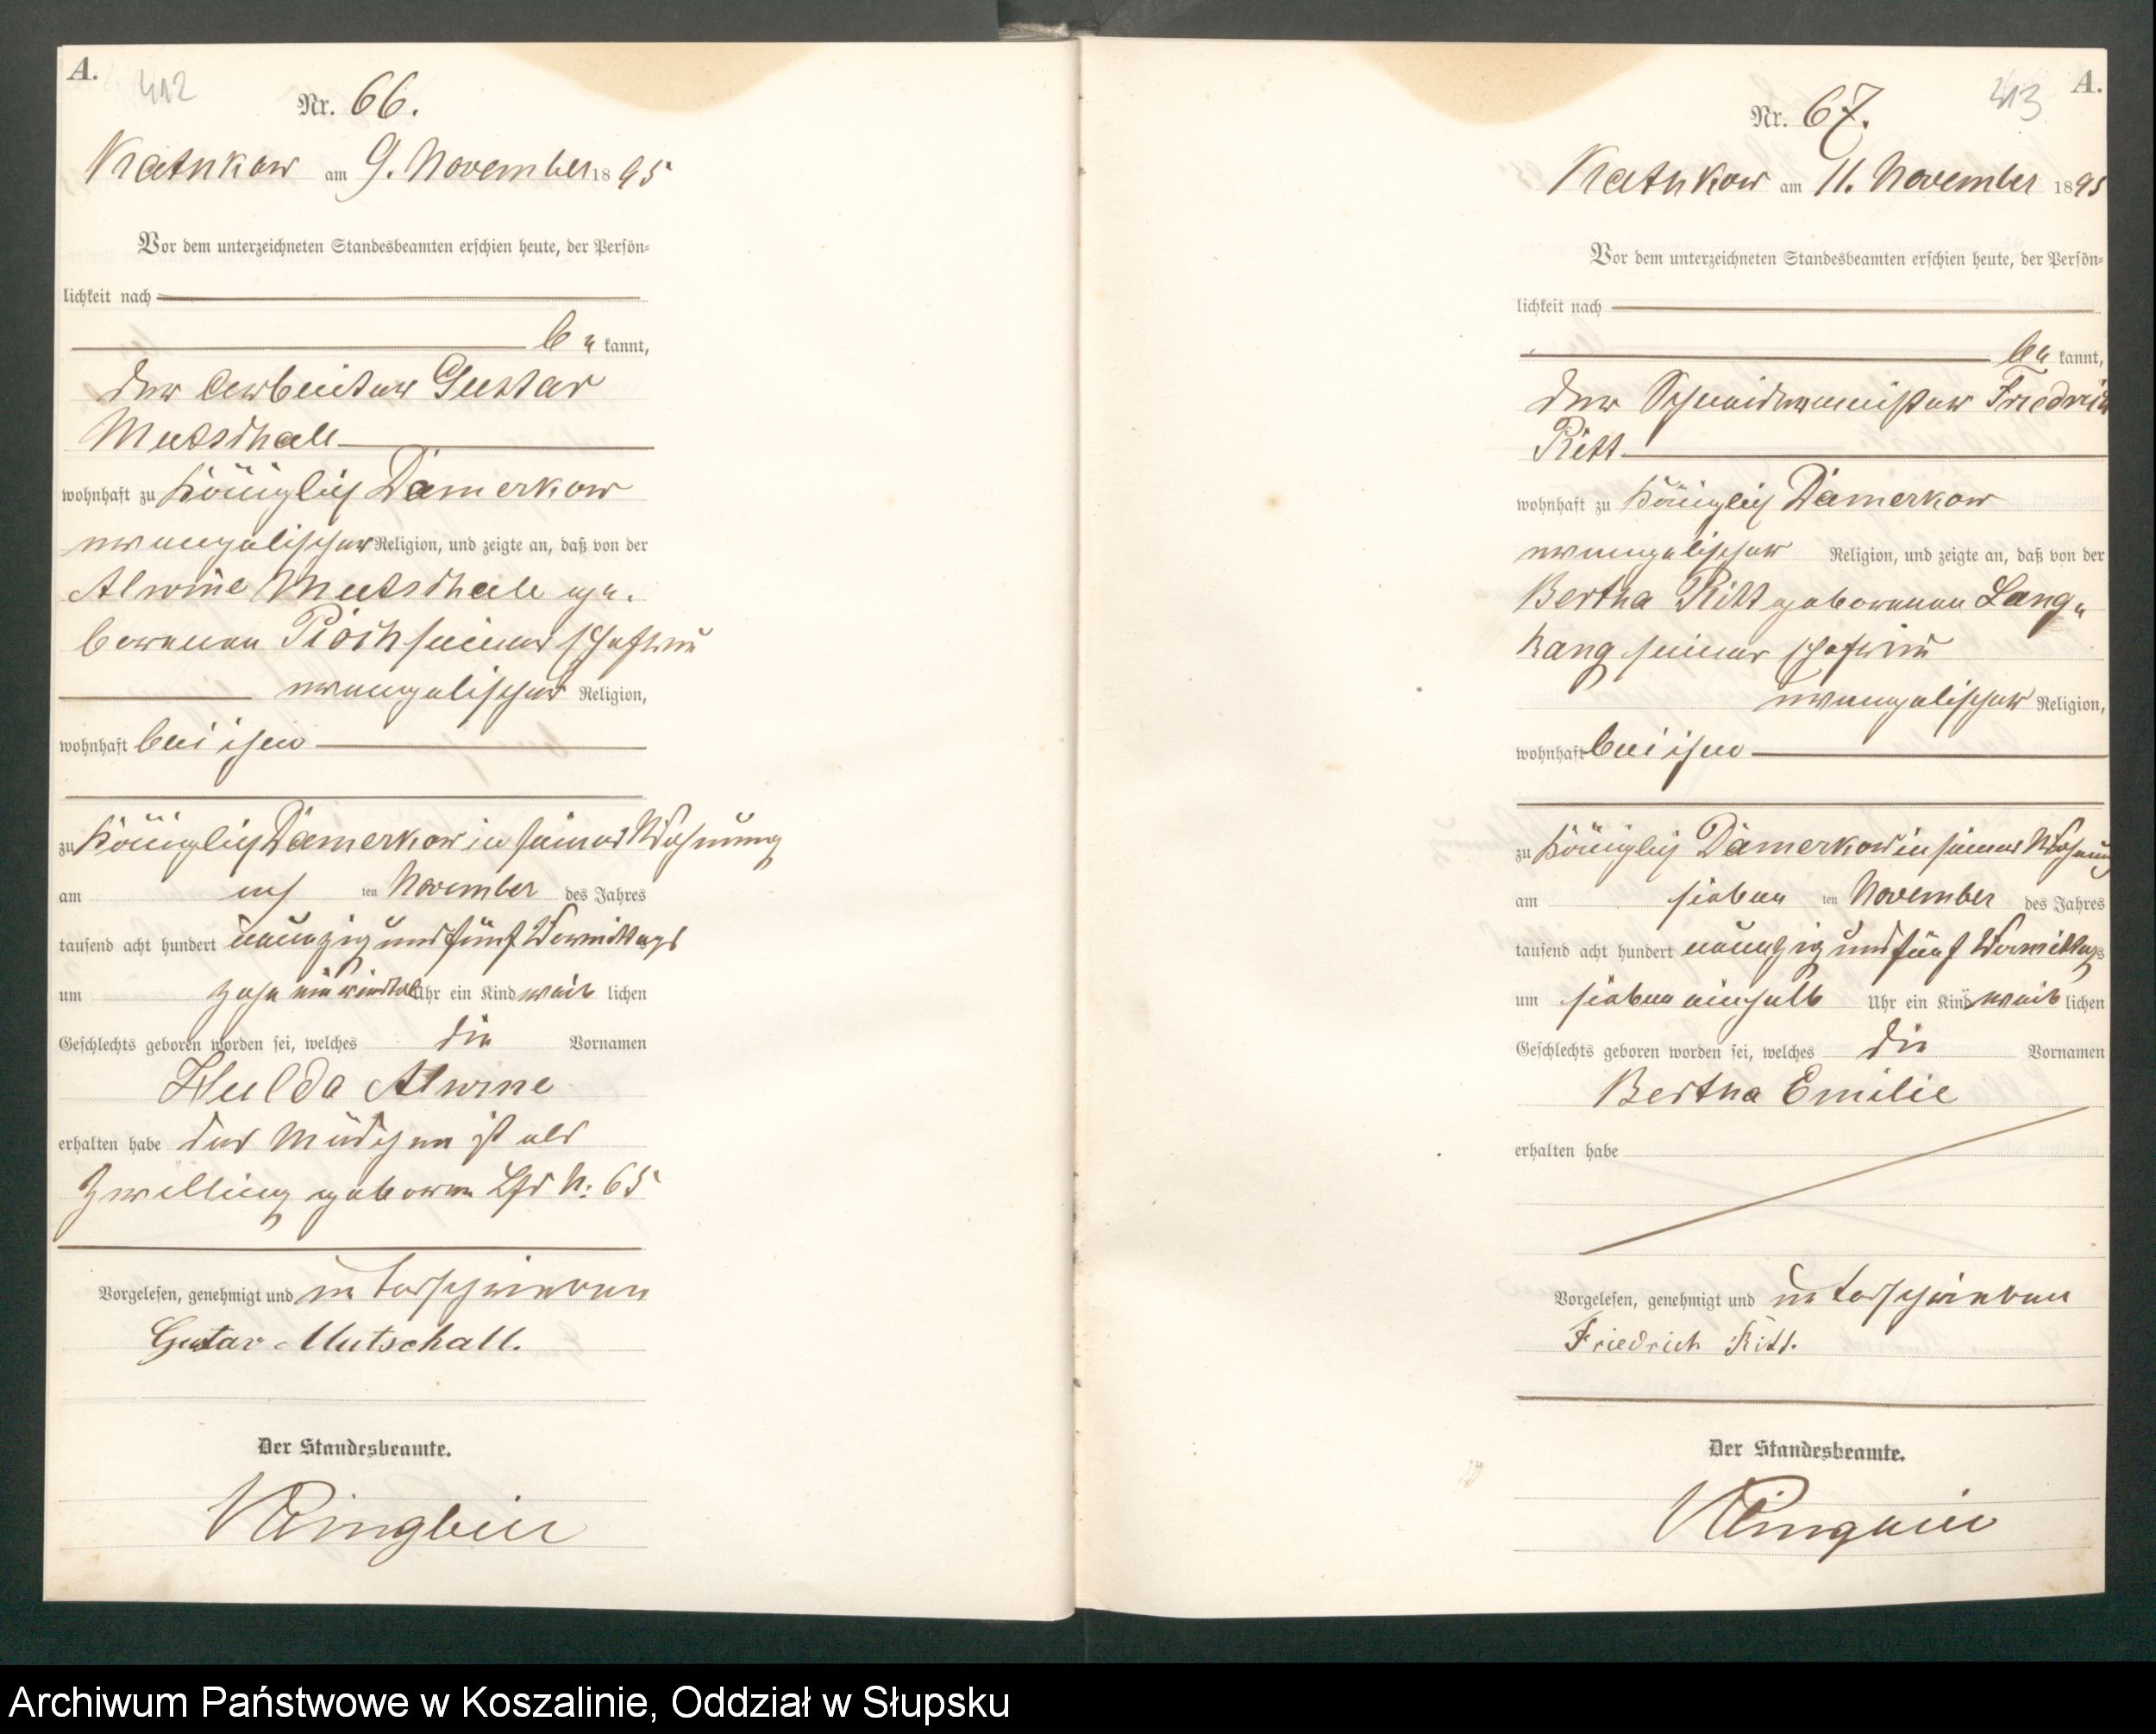 A.
412
Nr. 66.
Kathkow am 9. November 1895
Vor dem unterzeichneten Standesbeamten erschien heute, der Persön-
lichkeit nach
be kannt,
der Arbeiter Gustav
Mutschall
wohnhaft zu Königlich Damerkow
evangelischer Religion, und zeigte an, daß von der
Alwine Mutschall ge-
borenen Pioch seiner Ehefrau
evangelischer Religion,
wohnhaft bei ihm
zu Königlich Damerkow in seiner Wohnung
am ach ten November des Jahres
tausend acht hundert neunzig und fünf Vormittags
um zehn ein viertel Uhr ein Kind weib lichen
Geschlechts geboren worden sei, welches die Vornamen
Hulda Alwine
erhalten habe das Mädchen ist als
Zwilling geboren Lfd N: 65
Vorgelesen, genehmigt und unterschrieben
Gustav Mutschall.
Der Standesbeamte.
A.
413
Nr. 67.
Kathkow am 11. November 1895
Vor dem unterzeichneten Standesbeamten erschien heute, der Persön-
lichkeit nach
be kannt,
der Schneidermeister Friedrich
Ritt
wohnhaft zu Königlich Damerkow
evangelischer Religion, und zeigte an, daß von der
Bertha Ritt geborenen Lang-
hang seiner Ehefrau
evangelischer Religion,
wohnhaft bei ihm
zu Königlich Damerkow in seiner Wohnung
am sieben ten November des Jahres
tausend acht hundert neunzig und fünf Vormittags
um sieben einhalb Uhr ein Kind weib lichen
Geschlechts geboren worden sei, welches die Vornamen
Bertha Emilie
erhalten habe
Vorgelesen, genehmigt und unterschrieben
Friedrich Ritt.
Der Standesbeamte.
Archiwum Państwowe w Koszalinie, Oddział w Słupsku